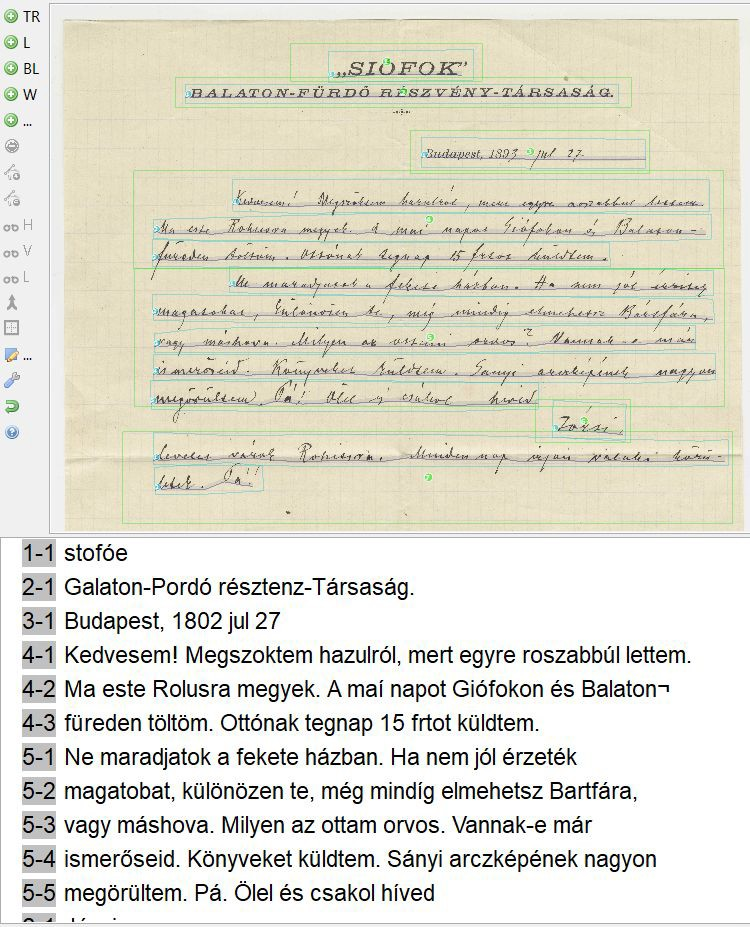 TR
L
BL
W
...
H
V
L
...
„SIÓFOK”
BALATON-FÜRDŐ RÉSZVÉNY-TÁRSASÁG.
Budapest, 1893 jul 27.
Kedvesem! Megszöktem hazulról, mert egyre roszabbul lettem.
Ma este Rohicsra megyek. A mai napot Siófokon és Balaton-
füreden töltöm. Ottónak tegnap 15 frtot küldtem.
Ne maradjatok a fekete házban. Ha nem jól érzitek
magatokat, különösen te, még mindig elmehetsz Bártfára,
vagy máshova. Milyen az ottani orvos? Vannak-e már
ismerőseid. Könyveket küldtem. Sanyi arczképének nagyon
megörültem. Pá! Ölel és csókol híved
Zsózsi.
levelet várok Rohicsra. Minden nap írjon valaki közü-
letek. Pá!
1-1 stofóe
2-1 Galaton-Pordó résztenz-Társaság.
3-1 Budapest, 1802 jul 27
4-1 Kedvesem! Megszoktem hazulról, mert egyre roszabbúl lettem.
4-2 Ma este Rolusra megyek. A maí napot Giófokon és Balaton¬
4-3 füreden töltöm. Ottónak tegnap 15 frtot küldtem.
5-1 Ne maradjatok a fekete házban. Ha nem jól érzeték
5-2 magatobat, különözen te, még mindíg elmehetsz Bartfára,
5-3 vagy máshova. Milyen az ottam orvos. Vannak-e már
5-4 ismerőseid. Könyveket küldtem. Sányi arczképének nagyon
5-5 megörültem. Pá. Ölel és csakol híved